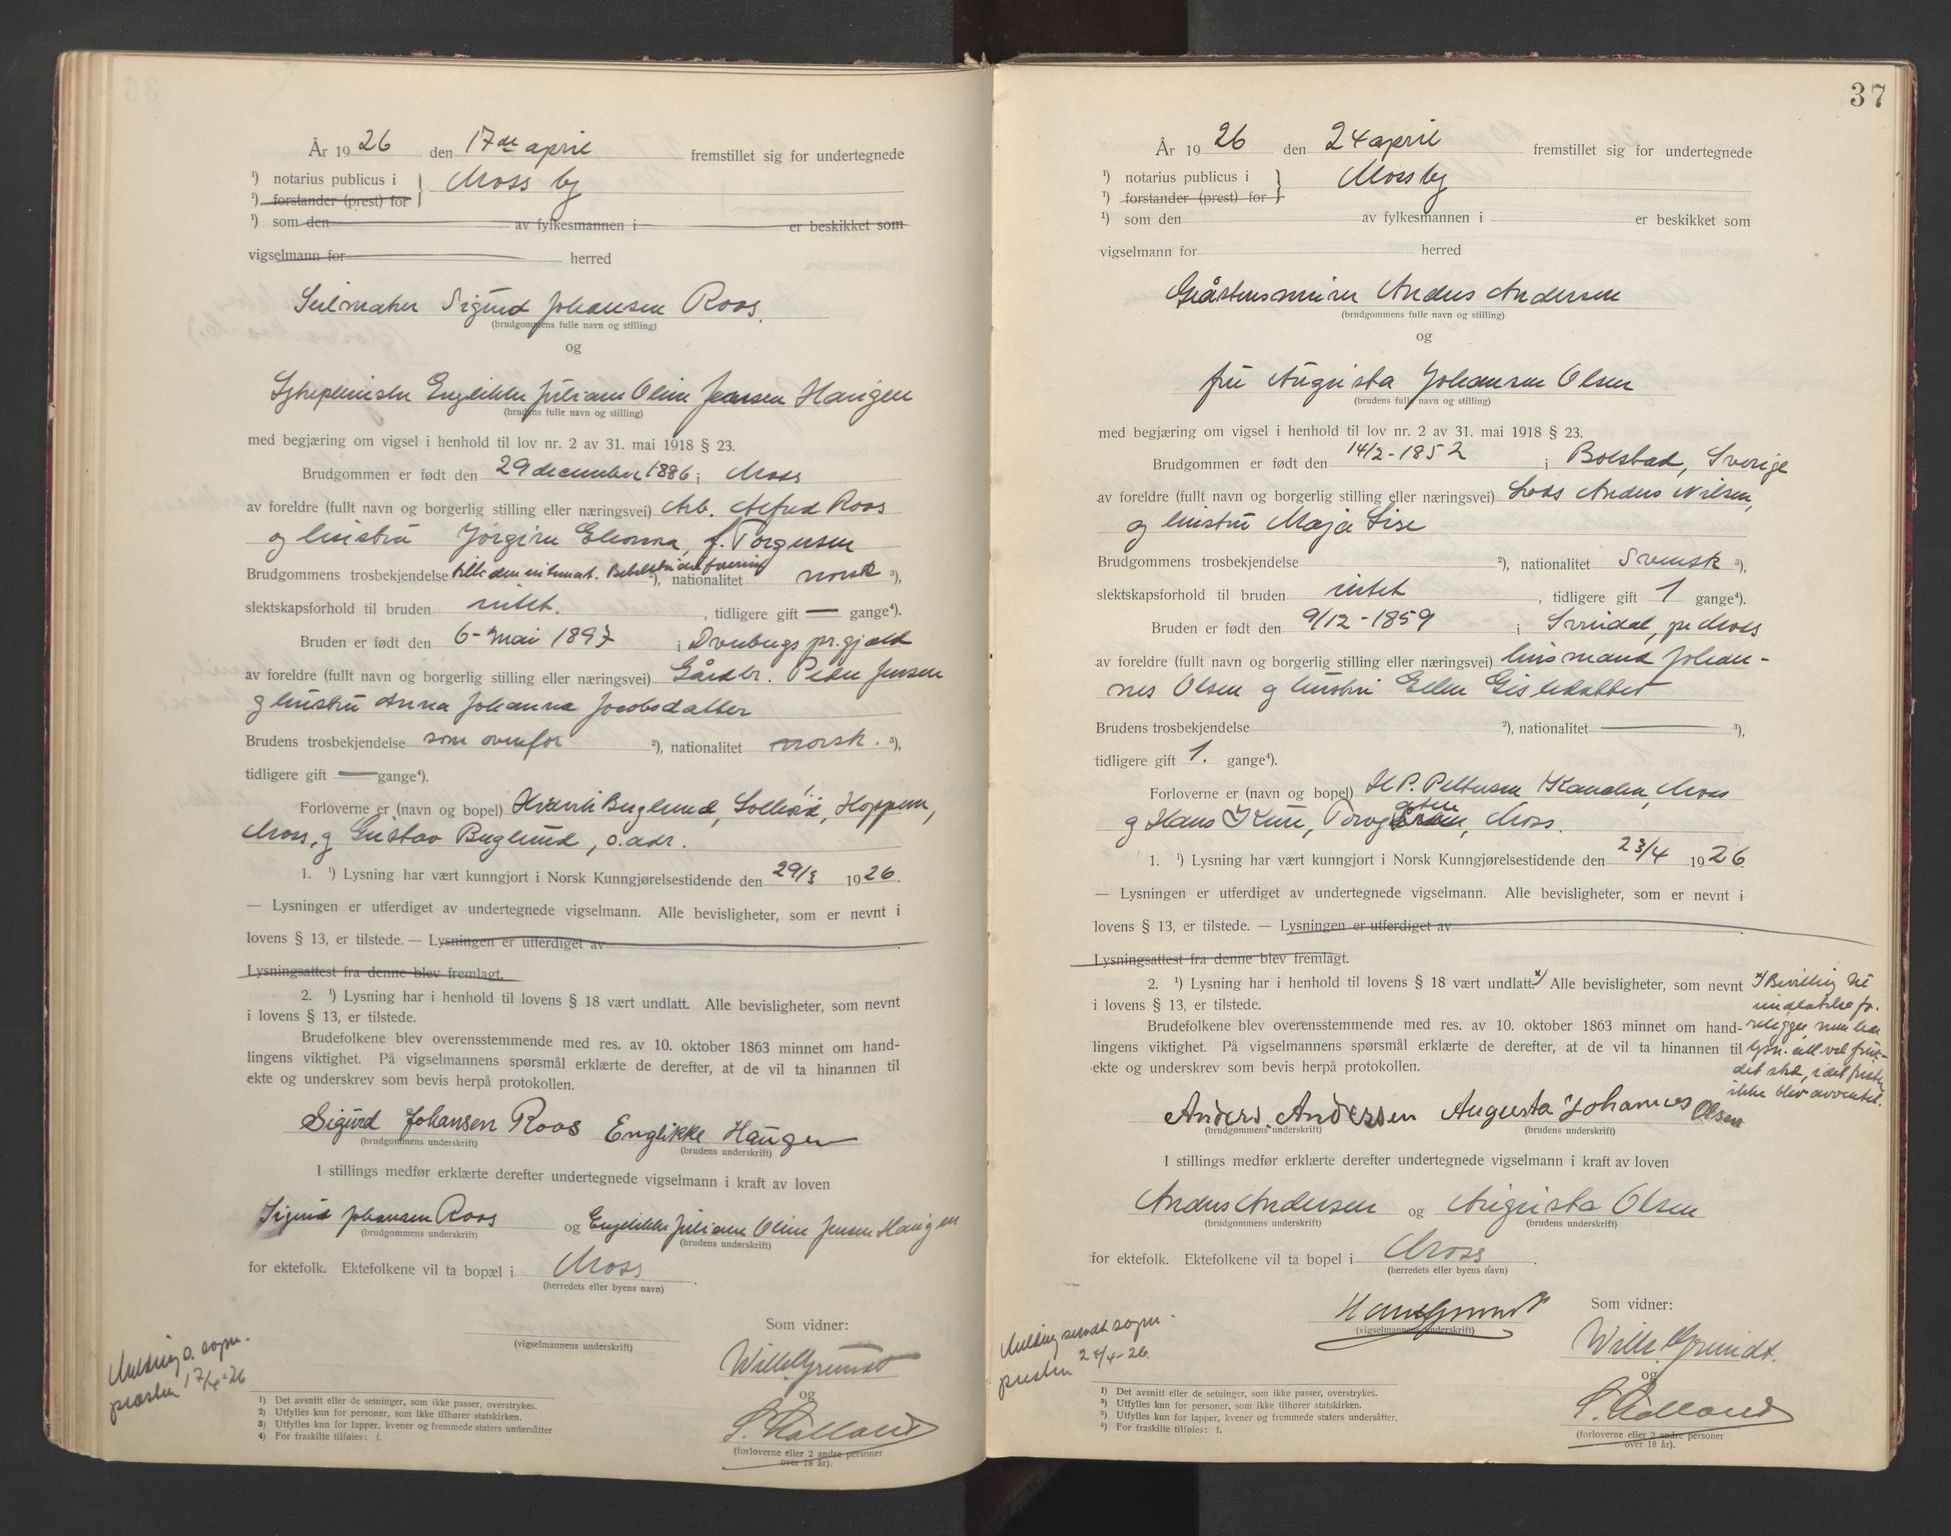 År 1926 den 17de april fremstillet sig for undertegnede
¹) notarius publicus i } Moss by
¹) forstander (prest) for
¹) som den av fylkesmannen i er beskikket som
vigselmann for herred
Seilmaker Sigurd Johansen Roos.
(brudgommens fulle navn og stilling)
og
Sykepleierske Englikke Juliane Oline Jensen Haugen
(brudens fulle navn og stilling)
med begjæring om vigsel i henhold til lov nr. 2 av 31. mai 1918 § 23.
Brudgommen er født den 29 december 1886 i Moss
av foreldre (fullt navn og borgerlig stilling eller næringsvei) Arb. Alfred Roos
og hustru Jørgine Eleonora, f. Torgersen
Brudgommens trosbekjendelse ²), nationalitet norsk ³),
slektskapsforhold til bruden intet. , tidligere gift — gange⁴).
Bruden er født den 6 mai 1897 i pr.gjæld
av foreldre (fullt navn og borgerlig stilling eller næringsvei) Gårdbr. Peder Jensen
og hustru Anna Johanna Jacobsdatter
Brudens trosbekjendelse som ovenfor ²), nationalitet norsk. ³),
tidligere gift — gange⁴).
Forloverne er (navn og bopel) Henrik Berglund, Hoppern,
Moss, og Gustav Berglund, s. adr.
1. ¹) Lysning har vært kunngjort i Norsk Kunngjørelsestidende den 29/3 1926.
— Lysningen er utferdiget av undertegnede vigselmann. Alle bevisligheter, som er nevnt i
lovens § 13, er tilstede. — Lysningen er utferdiget av
Lysningsattest fra denne blev fremlagt.
2. ¹) Lysning har i henhold til lovens § 18 vært undlatt. Alle bevisligheter, som nevnt
i lovens § 13, er tilstede.
Brudefolkene blev overensstemmende med res. av 10. oktober 1863 minnet om hand-
lingens viktighet. På vigselmannens spørsmål erklærte de derefter, at de vil ta hinannen til
ekte og underskrev som bevis herpå protokollen.
Sigurd Johansen Roos Englikke Haugen
(brudgommens underskrift) (brudens underskrift)
I stillings medfør erklærte derefter undertegnede vigselmann i kraft av loven
Sigurd Johansen Roos og Englikke Juliane Oline Jensen Haugen
(brudgommens underskrift) (brudens underskrift)
for ektefolk. Ektefolkene vil ta bopæl i Moss
(herredets eller byens navn)
Som vidner:
(vigselmannens underskrift)
Wilh. Grundt
og
S. Rolland
(forloverne eller 2 andre personer
over 18 år).
Melding s. sogne-
presten 17/4-26
1) Det avsnitt eller de setninger, som ikke passer, overstrykes.
2) Utfylles kun for personer, som ikke tilhører statskirken.
3) Utfylles kun for lapper, kvener og fremmede staters undersåtter
4) For fraskilte tilføies: f.
37
År 1926 den 24 april fremstillet sig for undertegnede
¹) notarius publicus i } Moss by
¹) forstander (prest) for
¹) som den av fylkesmannen i er beskikket som
vigselmann for herred
Gråstensmurer Anders Andersen
(brudgommens fulle navn og stilling)
og
fru Augusta Johansen Olsen
(brudens fulle navn og stilling)
med begjæring om vigsel i henhold til lov nr. 2 av 31. mai 1918 § 23.
Brudgommen er født den 14/2-1852 i Bolstad, Sverige
av foreldre (fullt navn og borgerlig stilling eller næringsvei) Lods Anders Nilsen,
og hustru Maja Lise
Brudgommens trosbekjendelse ²), nationalitet Svensk ³),
slektskapsforhold til bruden intet , tidligere gift 1 gange⁴).
Bruden er født den 9/12-1859 i Svindal, pr Moss
av foreldre (fullt navn og borgerlig stilling eller næringsvei) husmand Johan-
nes Olsen og hustru Ellen Gislesdatter
Brudens trosbekjendelse ²), nationalitet — ³),
tidligere gift 1. gange⁴).
Forloverne er (navn og bopel) H. P. Pettersen Kanalen, Moss
og Hans Torvgaten, Moss.
1. ¹) Lysning har vært kunngjort i Norsk Kunngjørelsestidende den 23/4 1926
— Lysningen er utferdiget av undertegnede vigselmann. Alle bevisligheter, som er nevnt i
lovens § 13, er tilstede. — Lysningen er utferdiget av
Lysningsattest fra denne blev fremlagt.
2. ¹) Lysning har i henhold til lovens § 18 vært undlatt ˣ/ Alle bevisligheter, som nevnt
i lovens § 13, er tilstede.
Brudefolkene blev overensstemmende med res. av 10. oktober 1863 minnet om hand-
lingens viktighet. På vigselmannens spørsmål erklærte de derefter, at de vil ta hinannen til
ekte og underskrev som bevis herpå protokollen.
x/ Bevilling til
undlatelse fo-
religger men
det skd, idet fristen
ikke blev avventet.
Anders. Andersen Augusta Johannes Olsen
(brudgommens underskrift) (brudens underskrift)
I stillings medfør erklærte derefter undertegnede vigselmann i kraft av loven
Anders Andersen og Augusta Olsen
(brudgommens underskrift) (brudens underskrift)
for ektefolk. Ektefolkene vil ta bopel i Moss
(herredets eller byens navn)
Hans Grundt
(vigselmannens underskrift)
Som vidner:
Wilh. Grundt.
og
S. Rolland
(forloverne eller 2 andre personer
over 18 år).
Melding sendt sogne-
presten 24/4-26.
1) Det avsnitt eller de setninger, som ikke passer, overstrykes.
2) Utfylles kun for personer, som ikke tilhører statskirken.
3) Utfylles kun for lapper, kvener og fremmede staters undersåtter.
4) For fraskilte tilføies: f.